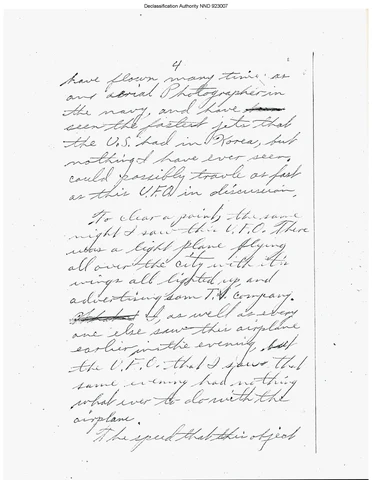 Declassification Authority NND 923007
4
have flown many time as
and aerial Photographer in
the navy, and have
seen the fastest jets that
the U.S. had in Korea, but
nothing I have ever seen,
could possibly travle as fast
as this U.F.O. in discussion.
To clear a point, the same
night I saw this U.F.O. There
was a light plane flying
all over the city with it's
wings all lighted up and
advertising som T.V. company.
I, as well as every
one else saw this airplane
earlier in the evening, but
the U.F.O. that I saw that
same evening had nothing
what ever to do with the
airplane.
The speed that this object